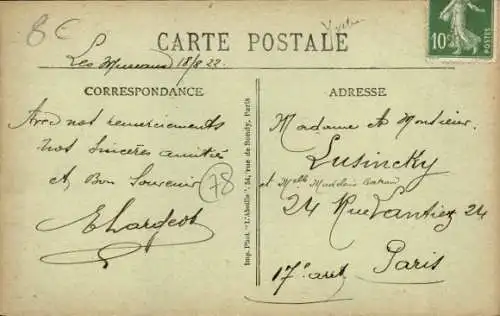 8€
Yvelin
CARTE POSTALE
10c
POSTES
Les Mureaux 18/8 22
CORRESPONDANCE
ADRESSE
Avec nos remerciements
nos sincères amitiés
et Bon Souvenir
78
E Largeot
Imp. Phot. "L'Abeille". 54, rue de Bondy, Paris
Madame et Monsieur
Lusincky
et Melle
24 Rue Lantiez 24
Paris
17e arrt